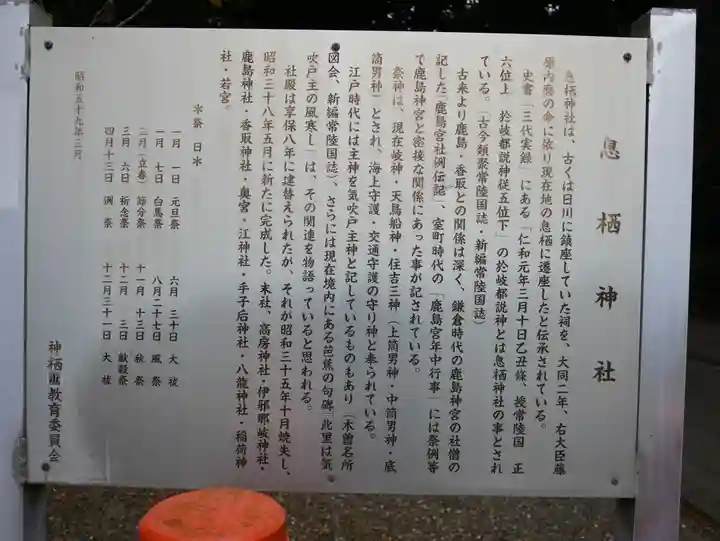 息栖神社
息栖神社は、古くは日川に鎮座していた祠を、大同二年、右大臣藤
原内麿の命に依り現在地の息栖に遷座したと伝承されている。
史書「三代実録」にある「仁和元年三月十日乙丑條、授常陸国　正
六位上　於岐都説神従五位下」の於岐都説神とは息栖神社の事とされ
ている。（古今類聚常陸国誌・新編常陸国誌）
古来より鹿島・香取との関係は深く、鎌倉時代の鹿島神宮の社僧の
記した「鹿島宮社例伝記」、室町時代の「鹿島宮年中行事」には祭例等
で鹿島神宮と密接な関係にあった事が記されている。
祭神は、現在岐神・天鳥船神・住吉三神（上筒男神・中筒男神・底
筒男神）とされ、海上守護・交通守護の守り神と奉られている。
江戸時代には主神を気吹戸主神と記しているものもあり（木曽名所
図会、新編常陸国誌）、さらには現在境内にある芭蕉の句碑「此里は気
吹戸主の風寒し」は、その関連を物語っていると思われる。
社殿は享保八年に建替えられたが、それが昭和三十五年十月焼失し、
昭和三十八年五月に新たに完成した。末社、高房神社・伊邪那岐神社・
鹿島神社・香取神社・奥宮・江神社・手子后神社・八龍神社・稲荷神
社・若宮。
＊祭　日＊
一月　一日　元旦祭　六月　三十日　大祓
一月　七日　白馬祭　八月二十七日　風祭
二月（立春）節分祭　十一月　十三日　秋祭
三月　六日　祈念祭　十二月　三日　献穀祭
四月十三日　例祭　十二月三十一日　大祓
昭和五十九年三月
神栖　教育委員会